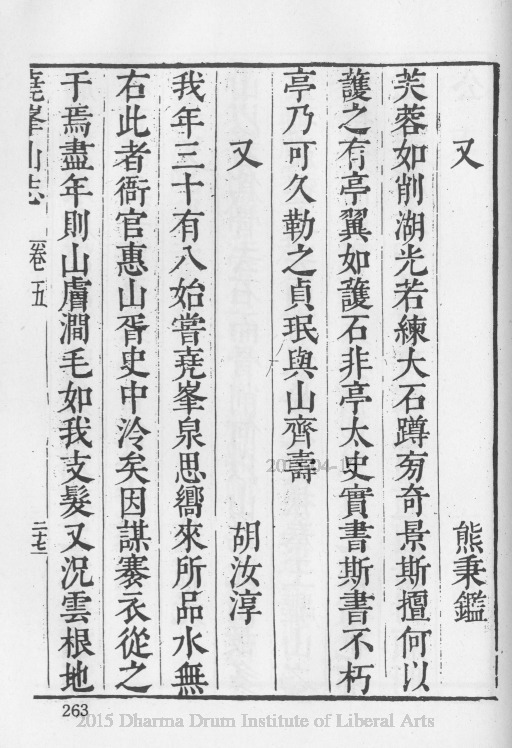 又　熊秉鑑
芙蓉如削湖光若練大石蹲旁奇景斯擅何以
護之有亭翼如護石非亭太史實書斯書不朽
亭乃可久勒之貞珉與山齊壽
又　胡汝淳
我年三十有八始嘗堯峯泉思嚮來所品水無
右此者衙官惠山胥史中泠矣因謀褰衣從之
于焉盡年則山膚澗毛如我支髮又況雲根地
堯峯山志　卷五　二七
263
2015 Dharma Drum Institute of Liberal Arts